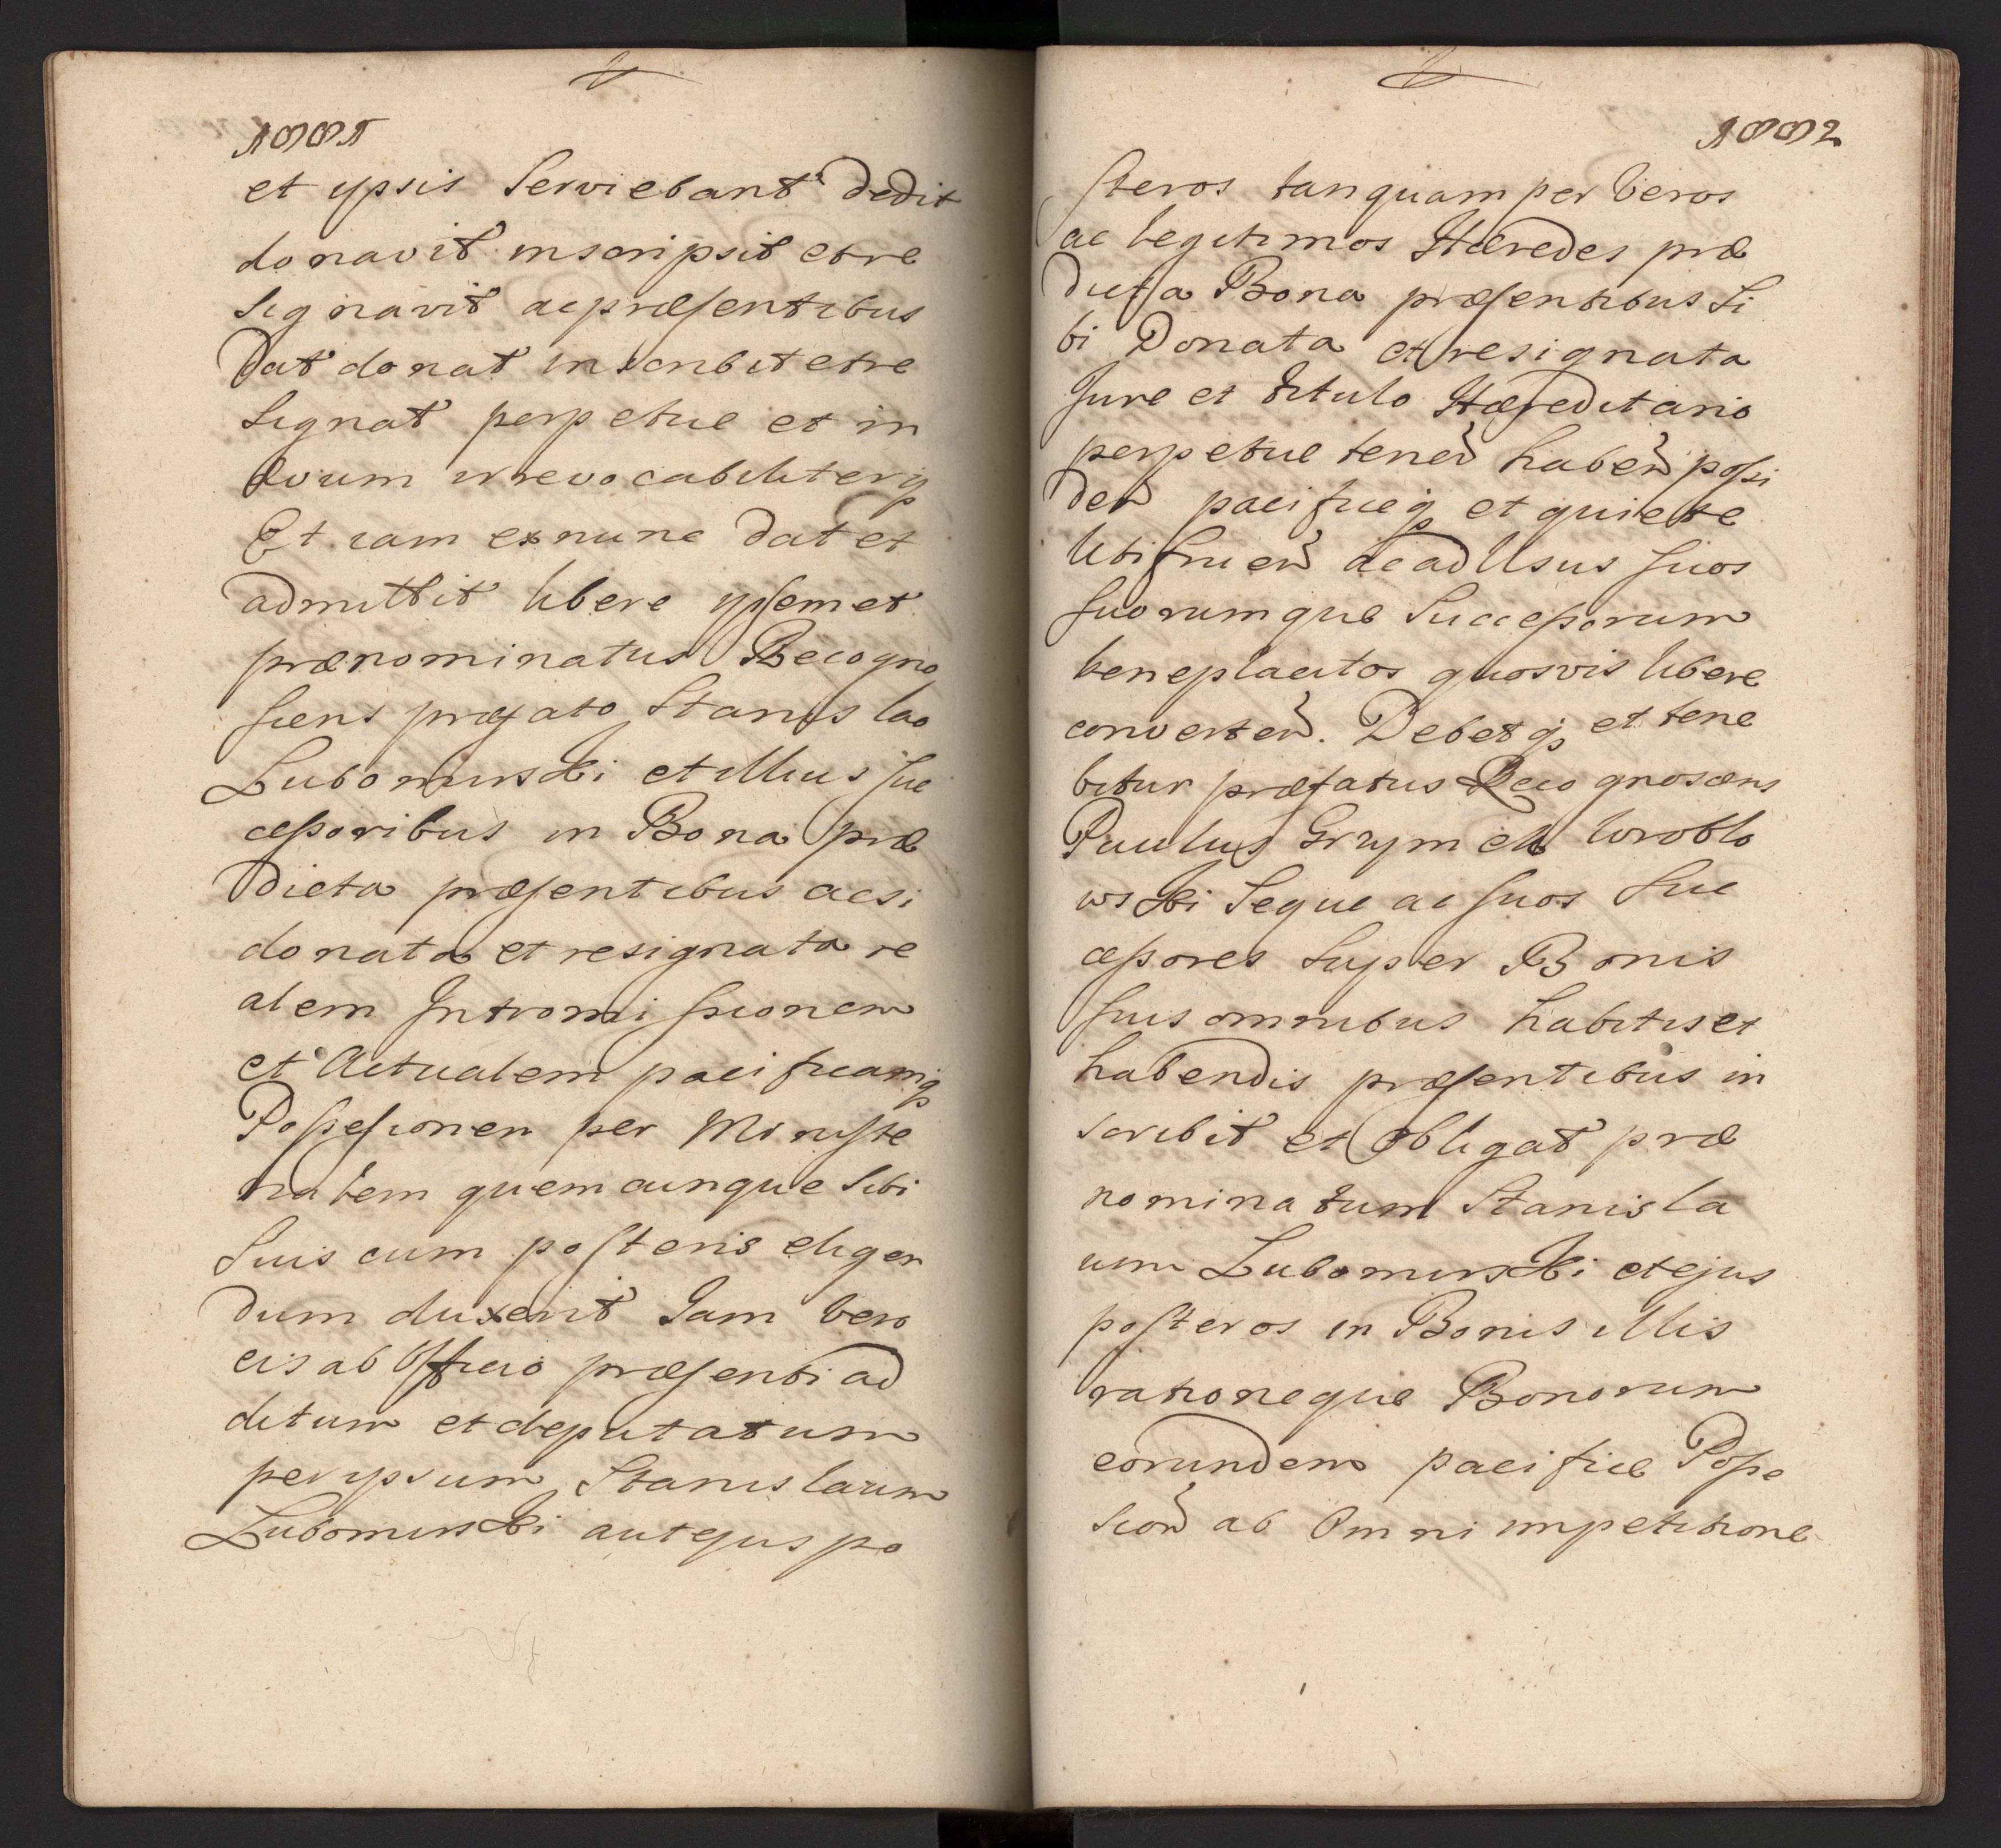 1881
et ypsis Serviebant dedit
donavit inscripsit et re
signavit ac præsentibus
Dat donat inscribit et re
signat perpetue et in
ævum irrevocabiliterq
Et iam ex nunc dat et
admittit libere ypsemet
prænominatus Recogno
scens præfato Stanislao
Lubomirski et illius suc
cessoribus in Bona præ
dicta præsentibus ac si
donata et resignata re
alem Intromissionem
et Actualem pacificamq
Possessionem per Ministe
rialem quemcunque sibi
Suis cum posteris eligen
dum duxerit Jam vero
eis ab Officio præsenti ad
ditum et deputatum
per ypsum Stanislaum
Lubomirski aut ejus po
1882
steros tanquam per veros
ac legitimos Hæredes præ
dicta Bona præsentibus Si
bi Donata et resignata
Jure et titulo Hæreditario
perpetue tened habend possi
dend pacificeq et quiete
utifruend ac ad Usus suos
suorumque Successorum
beneplacitos quosvis libere
convertend. Debetq et tene
bitur præfatus Recognoscens
Paulus Grzymek Wroblo
wski Seque ac suos Suc
cessores super Bonis
suis omnibus habitis et
habendis præsentibus in
scribit et obligat præ
nominatum Stanisla
um Lubomirski et ejus
posteros in Bonis illis
rationeque Bonorum
eorundem pacifice Posse
sion ab Omni impetitione